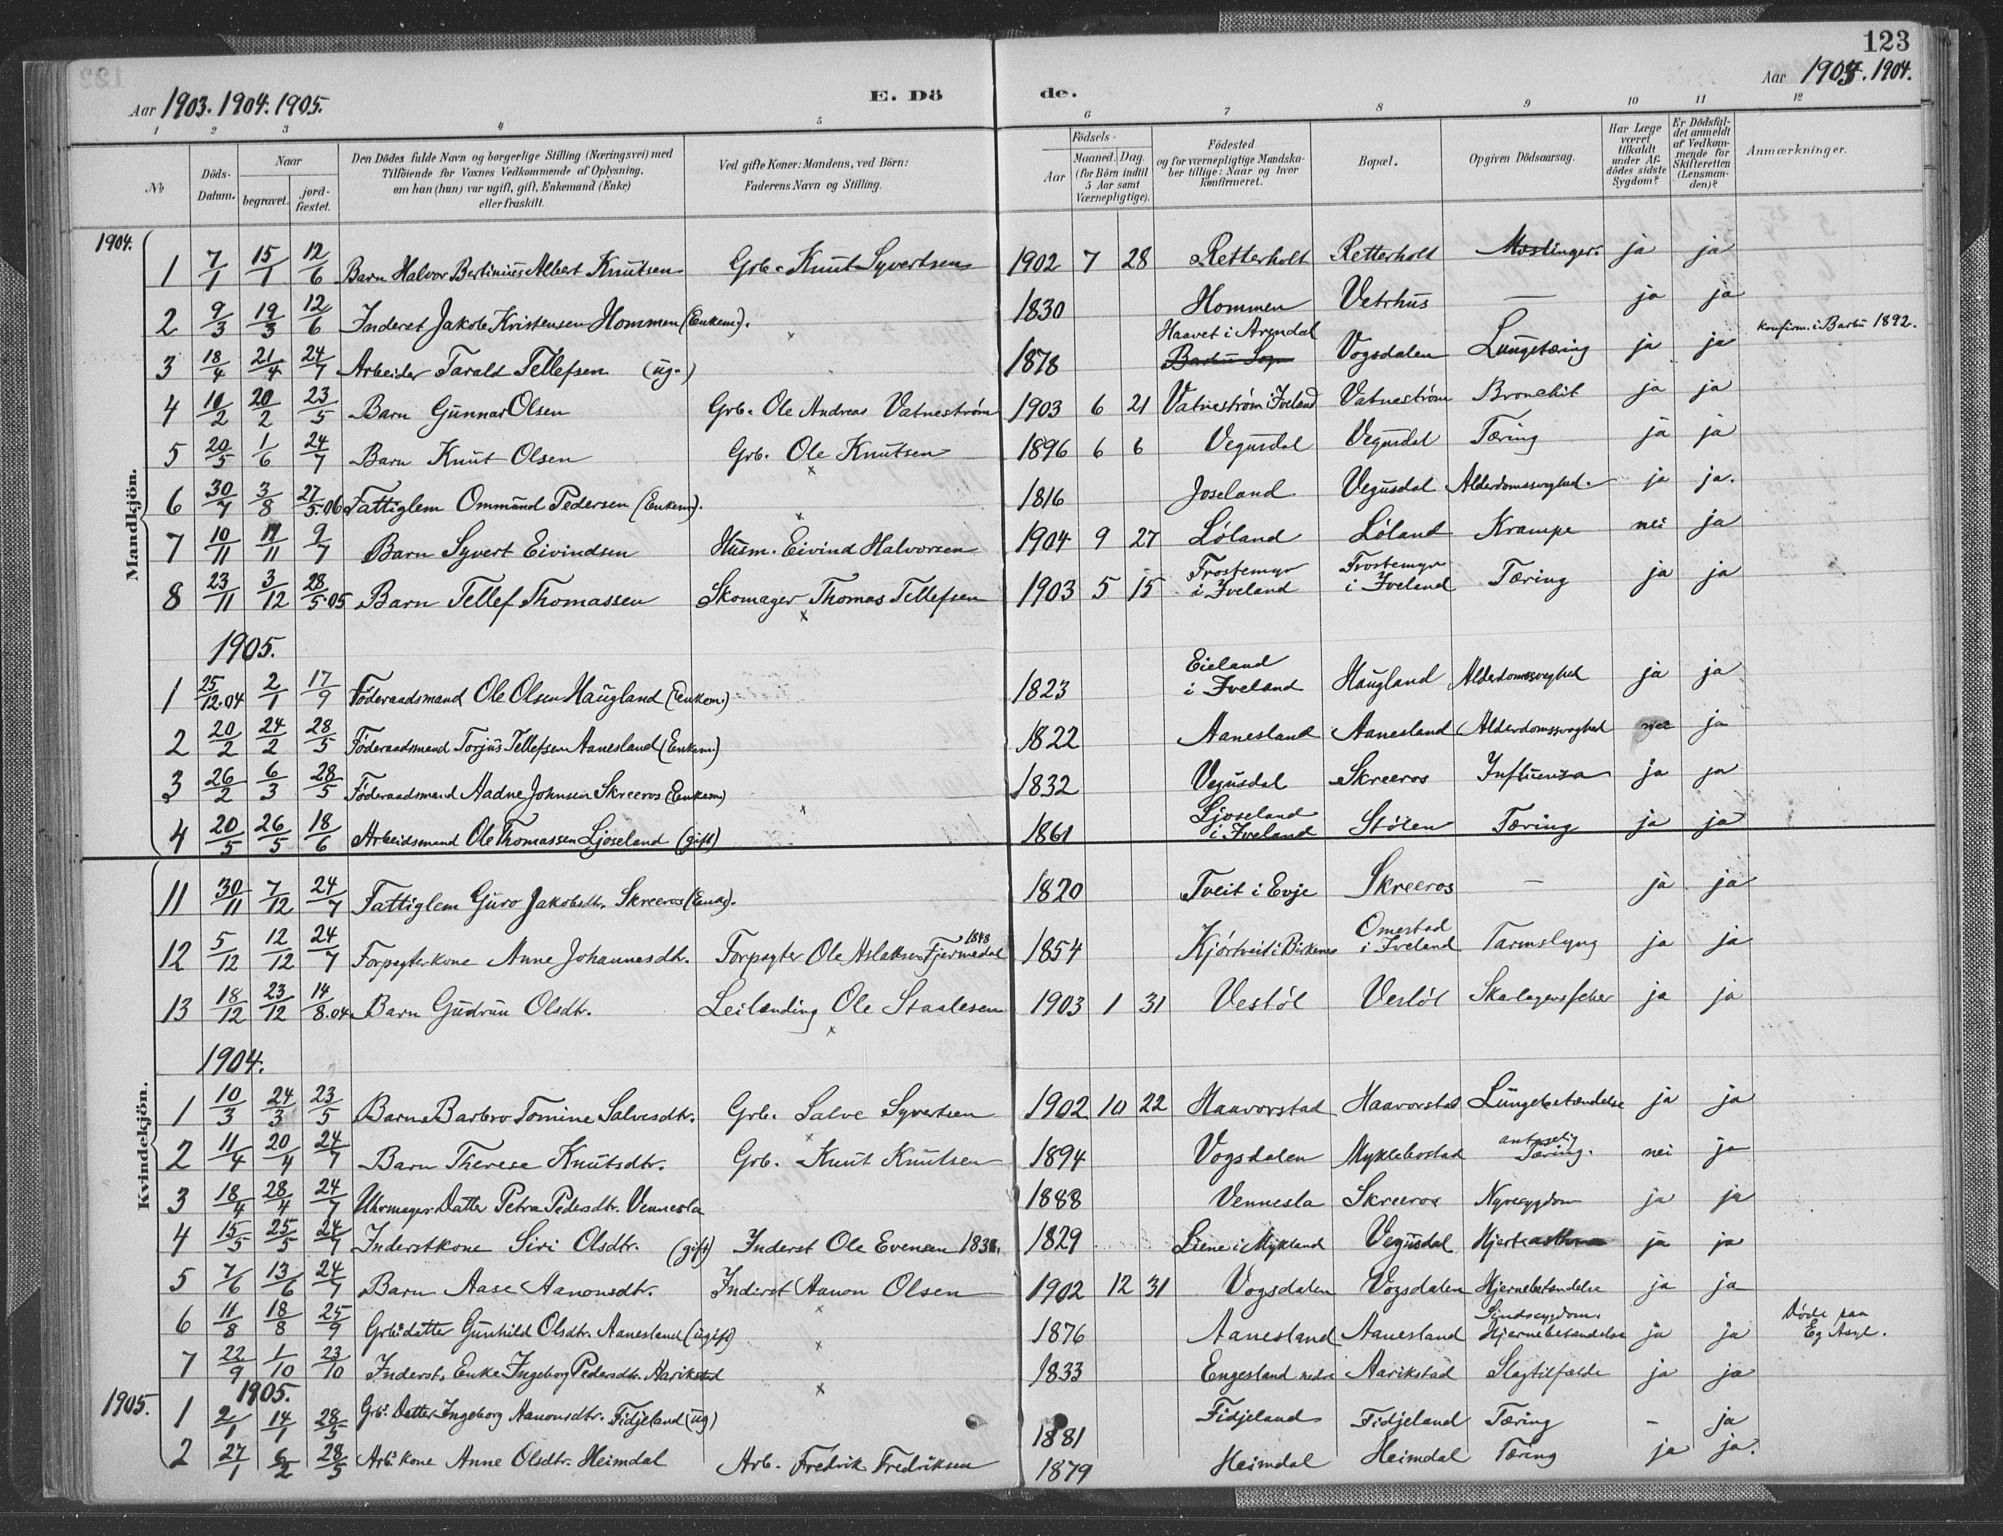 123
Aar 1903. 1904. 1905.
E. Dö
de.
Aar 1903. 1904.
1 2 3 4 5 6 7 8 9 10 11 12
No
Döds-Datum.
Naar
begravet.
jord-fæstet.
Den Dödes fulde Navn og borgerlige Stilling (Næringsvei) med
Tilföiende for Voxnes Vedkommende af Oplysning,
om han (hun) var ugift, gift, Enkemand (Enke)
eller fraskilt.
Ved gifte Koner: Mandens, ved Börn:
Faderens Navn og Stilling.
Födsels-
Aar
Maaned. Dag.
(for Börn indtil
5 Aar samt
Værnepligtige).
Födested
og for værnepligtige Mandska-
ber tillige: Naar og hvor
konfirmeret.
Bopæl.
Opgiven Dödsaarsag.
Har Læge
været
tilkaldt
under Af-
dödes sidste
Sygdom?
Er Dödsfal-
det anmeldt
af Vedkom-
mende for
Skifteretten
(Lensman-
den)?
Anmærkninger.
Mandkjön.
1904.
1 7/1 15/1 12/6 Barn Halvor Bertinius Albert Knutsen Grb. Knut Syvertsen 1902 7 28 Retterholt Retterholt Mæslinger ja ja
2 9/3 19/3 12/6 Inderst Jakob Kristensen Hommen (Enkem). 1830 Hommen Vetrhus — ja ja
3 18/4 21/4 24/7 Arbeider Tarald Tellefsen (ug.) 1878 Haavet i Arendal Barbu Sogn Vogsdalen Lungetæring ja ja konfirm. i Barbu 1892.
4 10/2 20/2 23/5 Barn Gunnar Olsen Grb. Ole Andreas Vatneström 1903 6 21 Vatneström i Iveland Vatneström Bronchit ja ja
5 20/5 1/6 24/7 Barn Knut Olsen Grb. Ole Knutsen 1896 6 6 Vegusdal Vegusdal Tæring ja ja
6 30/7 3/8 27/5.06 Fattiglem Ommund Pedersen (Enkem). 1816 Joseland Vegusdal Alderdomssvaghed. ja ja.
7 10/11 17/11 9/7 Barn Syvert Eivindsen Husm. Eivind Halvorsen 1904 9 27 Löland Löland Krampe nei ja
8 23/11 3/12 28/5.05 Barn Tellef Thomassen Skomager Thomas Tellefsen 1903 5 15 Frostemyr i Iveland Frostemyr i Iveland Tæring ja ja
1905.
1 25/12.04 2/1 17/9 Föderaadsmand Ole Olsen Haugland (Enkem.) 1823 Eieland i Iveland Haugland Alderdomssvaghed ja ja
2 20/2 24/2 28/5 Föderaadsmand Torjus Tellefsen Aanesland (Enkem.) 1822 Aanesland Aanesland Alderdomssvaghed nei ja
3 26/2 6/3 28/5 Föderaadsmand Aadne Johnsen Skreeros (Enkem) 1832 Vegusdal Skreeros Influenza ja ja
4 20/5 26/5 18/6 Arbeidsmand Ole Thomassen Ljoseland (gift) 1861 Ljoseland i Iveland Stölen Tæring ja ja
Kvindekjön.
11 30/11 7/12 24/7 Fattiglem Guro Jakobsdtr. Skreeros (Enke). 1820 Tveit i Evje Skreeros — ja ja
12 5/12 12/12 24/7 Forpagterkone Anne Johannesdtr. Forpagter Ole Aslaksen Fjermedal 1848 1854 Kjörtveit i Birkenes Omestad i Iveland Tarmslyng ja ja
13 18/12 23/12 14/8.04 Barn Gudrun Olsdtr. Leilænding Ole Staalesen 1903 1 31 Vestöl Vestöl Skarlagensfeber ja ja
1904.
1 10/3 24/3 23/5 Barn Barbro Tomine Salvesdtr. Grb. Salve Syvertsen 1902 10 22 Haavorstad Haavorstad Lungebetændelse ja ja
2 11/4 20/4 24/7 Barn Therese Knutsdtr. Grb. Knut Knutsen 1894 Vogsdalen Myklebostad antagelig Tæring. nei ja
3 18/4 28/4 24/7 Uhrmager Datter Petra Pedersdtr. Vennesla 1888 Vennesla Skreeros Nyresygdom ja ja
4 15/5 25/5 24/7 Inderstkone Siri Olsdtr. (gift) Inderst Ole Evensen 1829 Liene i Mykland Vegusdal ja ja
5 7/6 13/6 24/7 Barn Aase Aanonsdtr. Inderst Aanon Olsen 1902 12 31 Vogsdalen Vogsdalen Hjernebetændelse ja ja
6 11/8 18/8 25/9 Grb. datter Gunhild Olsdtr. Aanesland (ugift) 1876 Aanesland Aanesland Sindssygdom. Hjernebetændelse ja ja Döde paa Eg Asyl.
7 22/9 1/10 23/10 Inderst. Enke Ingeborg Pedersdtr. Aarikstad 1833 Engesland nedre Aarikstad Slagtilfælde ja ja
1905. 1905.
1 2/1 14/1 28/5 Grb. Datter Ingeborg Aanonsdtr. Fidjeland (ug) 1881 Fidjeland Fidjeland Tæring – ja
2 27/1 6/2 28/5 Arb. kone Anne Olsdtr. Heimdal Arb. Fredrik Fredriksen 1879 Heimdal Heimdal Tæring ja ja.